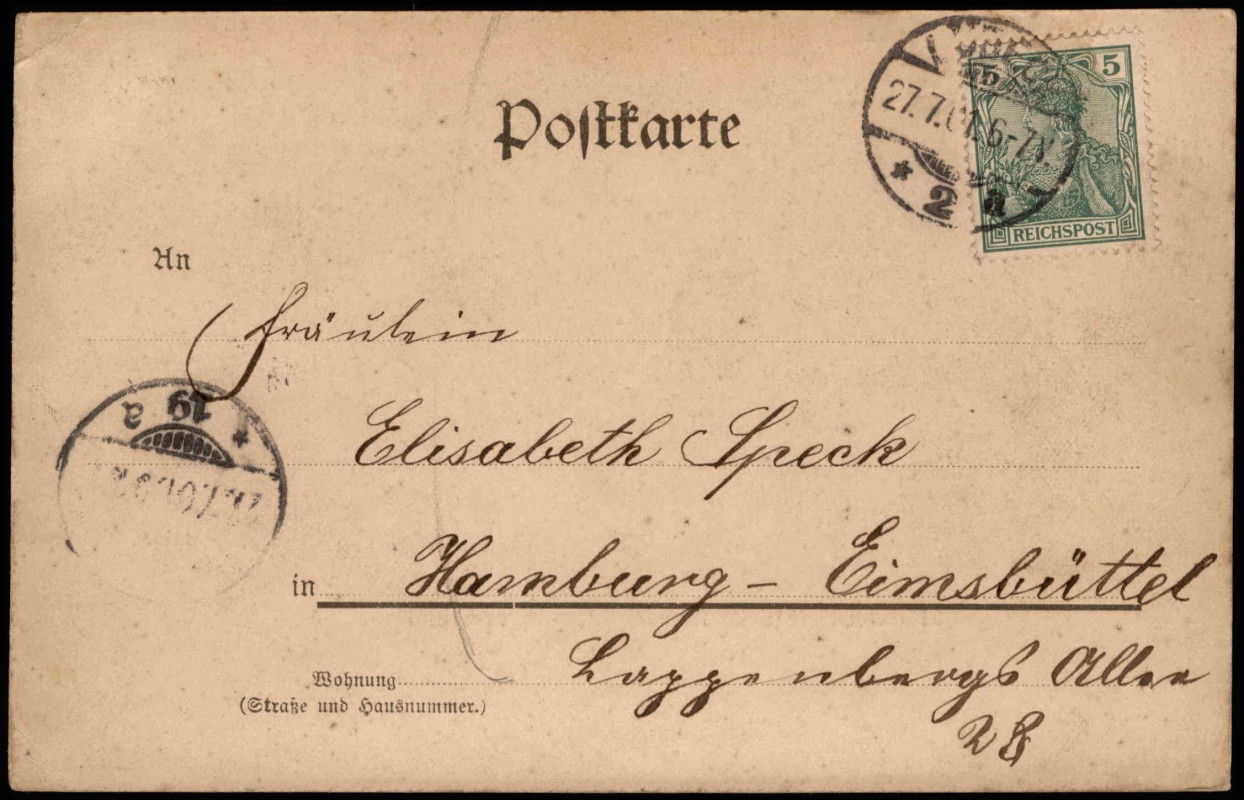 Postkarte
5 5
27.7.01. 6-7N.
* 2 a
REICHSPOST
An
Fräulein
* 19 a
Elisabeth Speck
in Hamburg - Eimsbüttel
Wohnung Lappenbergs Allee
(Straße und Hausnummer.)
28